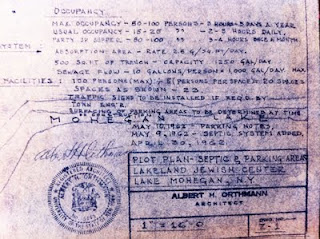 OCCUPANCY
MAX. OCCUPANCY - 80-100 PERSONS - 2 HOURS - 3 DAYS A YEAR
USUAL OCCUPANCY - 15-20 " - 2-3 HOURS DAILY
PARTY OR SUPPER - 80-100 " - 3-4 HOURS ONCE A MONTH
SYSTEM
ABSORPTION AREA - RATE 2.5 G/SQ.FT/DAY.
500 SQ.FT OF TRENCH - CAPACITY 1250 GAL/DAY
SEWAGE FLOW - 10 GALLONS/PERSON = 1,000 GAL/DAY MAX.
FACILITIES: 100 PERSONS (MAX.) ÷ 5 PERSONS PER SPACE = 20 SPACES
SPACES AS SHOWN - 23
TRAFFIC SIGNS TO BE INSTALLED IF REQ'D BY
TOWN ENG'R.
SURFACING OF PARKING AREAS TO BE DETERMINED AT TIME
MOHEGAN
MAY 10, 1962 - PARKING NOTES,
MAY 9, 1962 - SEPTIC SYSTEM ADDED,
APRIL 30, 1962
PLOT PLAN - SEPTIC & PARKING AREAS
LAKELAND JEWISH CENTER
LAKE MOHEGAN, N.Y.
ALBERT H. ORTHMANN
ARCHITECT
1" = 16'-0"
Z-1